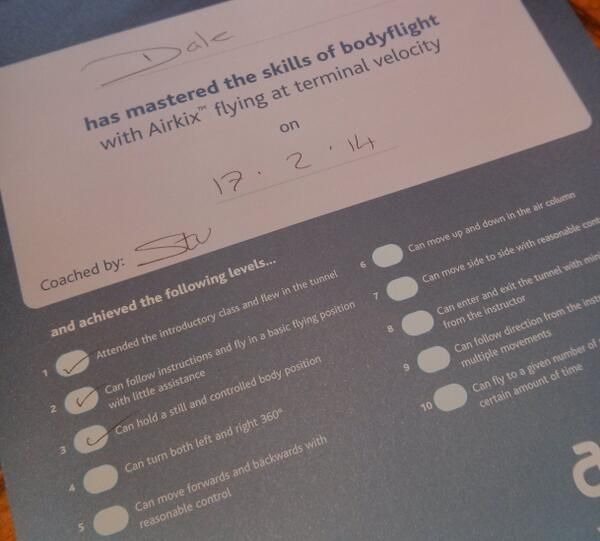 Dale
has mastered the skills of bodyflight
with Airkix™ flying at terminal velocity
on
17 . 2 . 14
Coached by: Stu
and achieved the following levels...
1 Attended the introductory class and flew in the tunnel
2 Can follow instructions and fly in a basic flying position
with little assistance
3 Can hold a still and controlled body position
4 Can turn both left and right 360°
5 Can move forwards and backwards with
reasonable control
6 Can move up and down in the air column
7 Can move side to side with reasonable
8 Can enter and exit the tunnel with
from the instructor
9 Can follow direction from the
multiple movements
10 Can fly to a given number of
certain amount of time